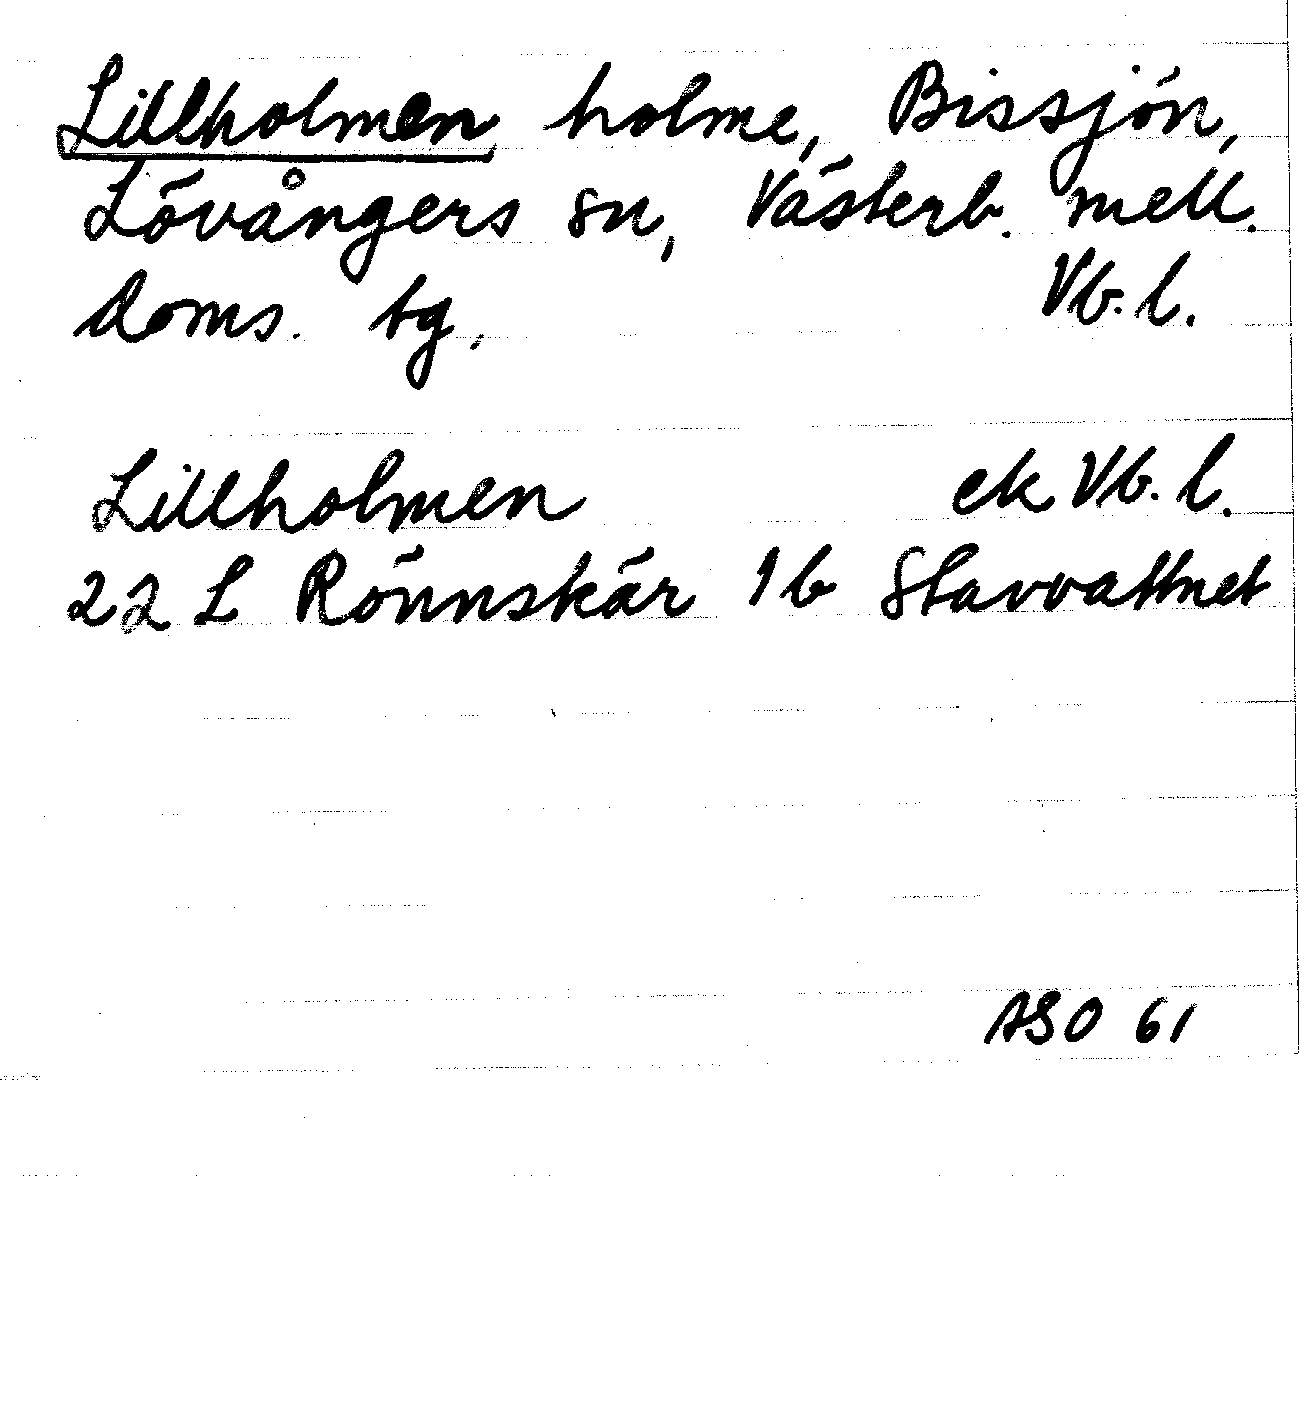 Lillholmen holme, Bissjön,
Lövångers sn, Västerb. mell.
doms. tg. Vb. l.
Lillholmen ek Vb. l.
22 L Rönnskär 1 b Stavvattnet
ASO 61